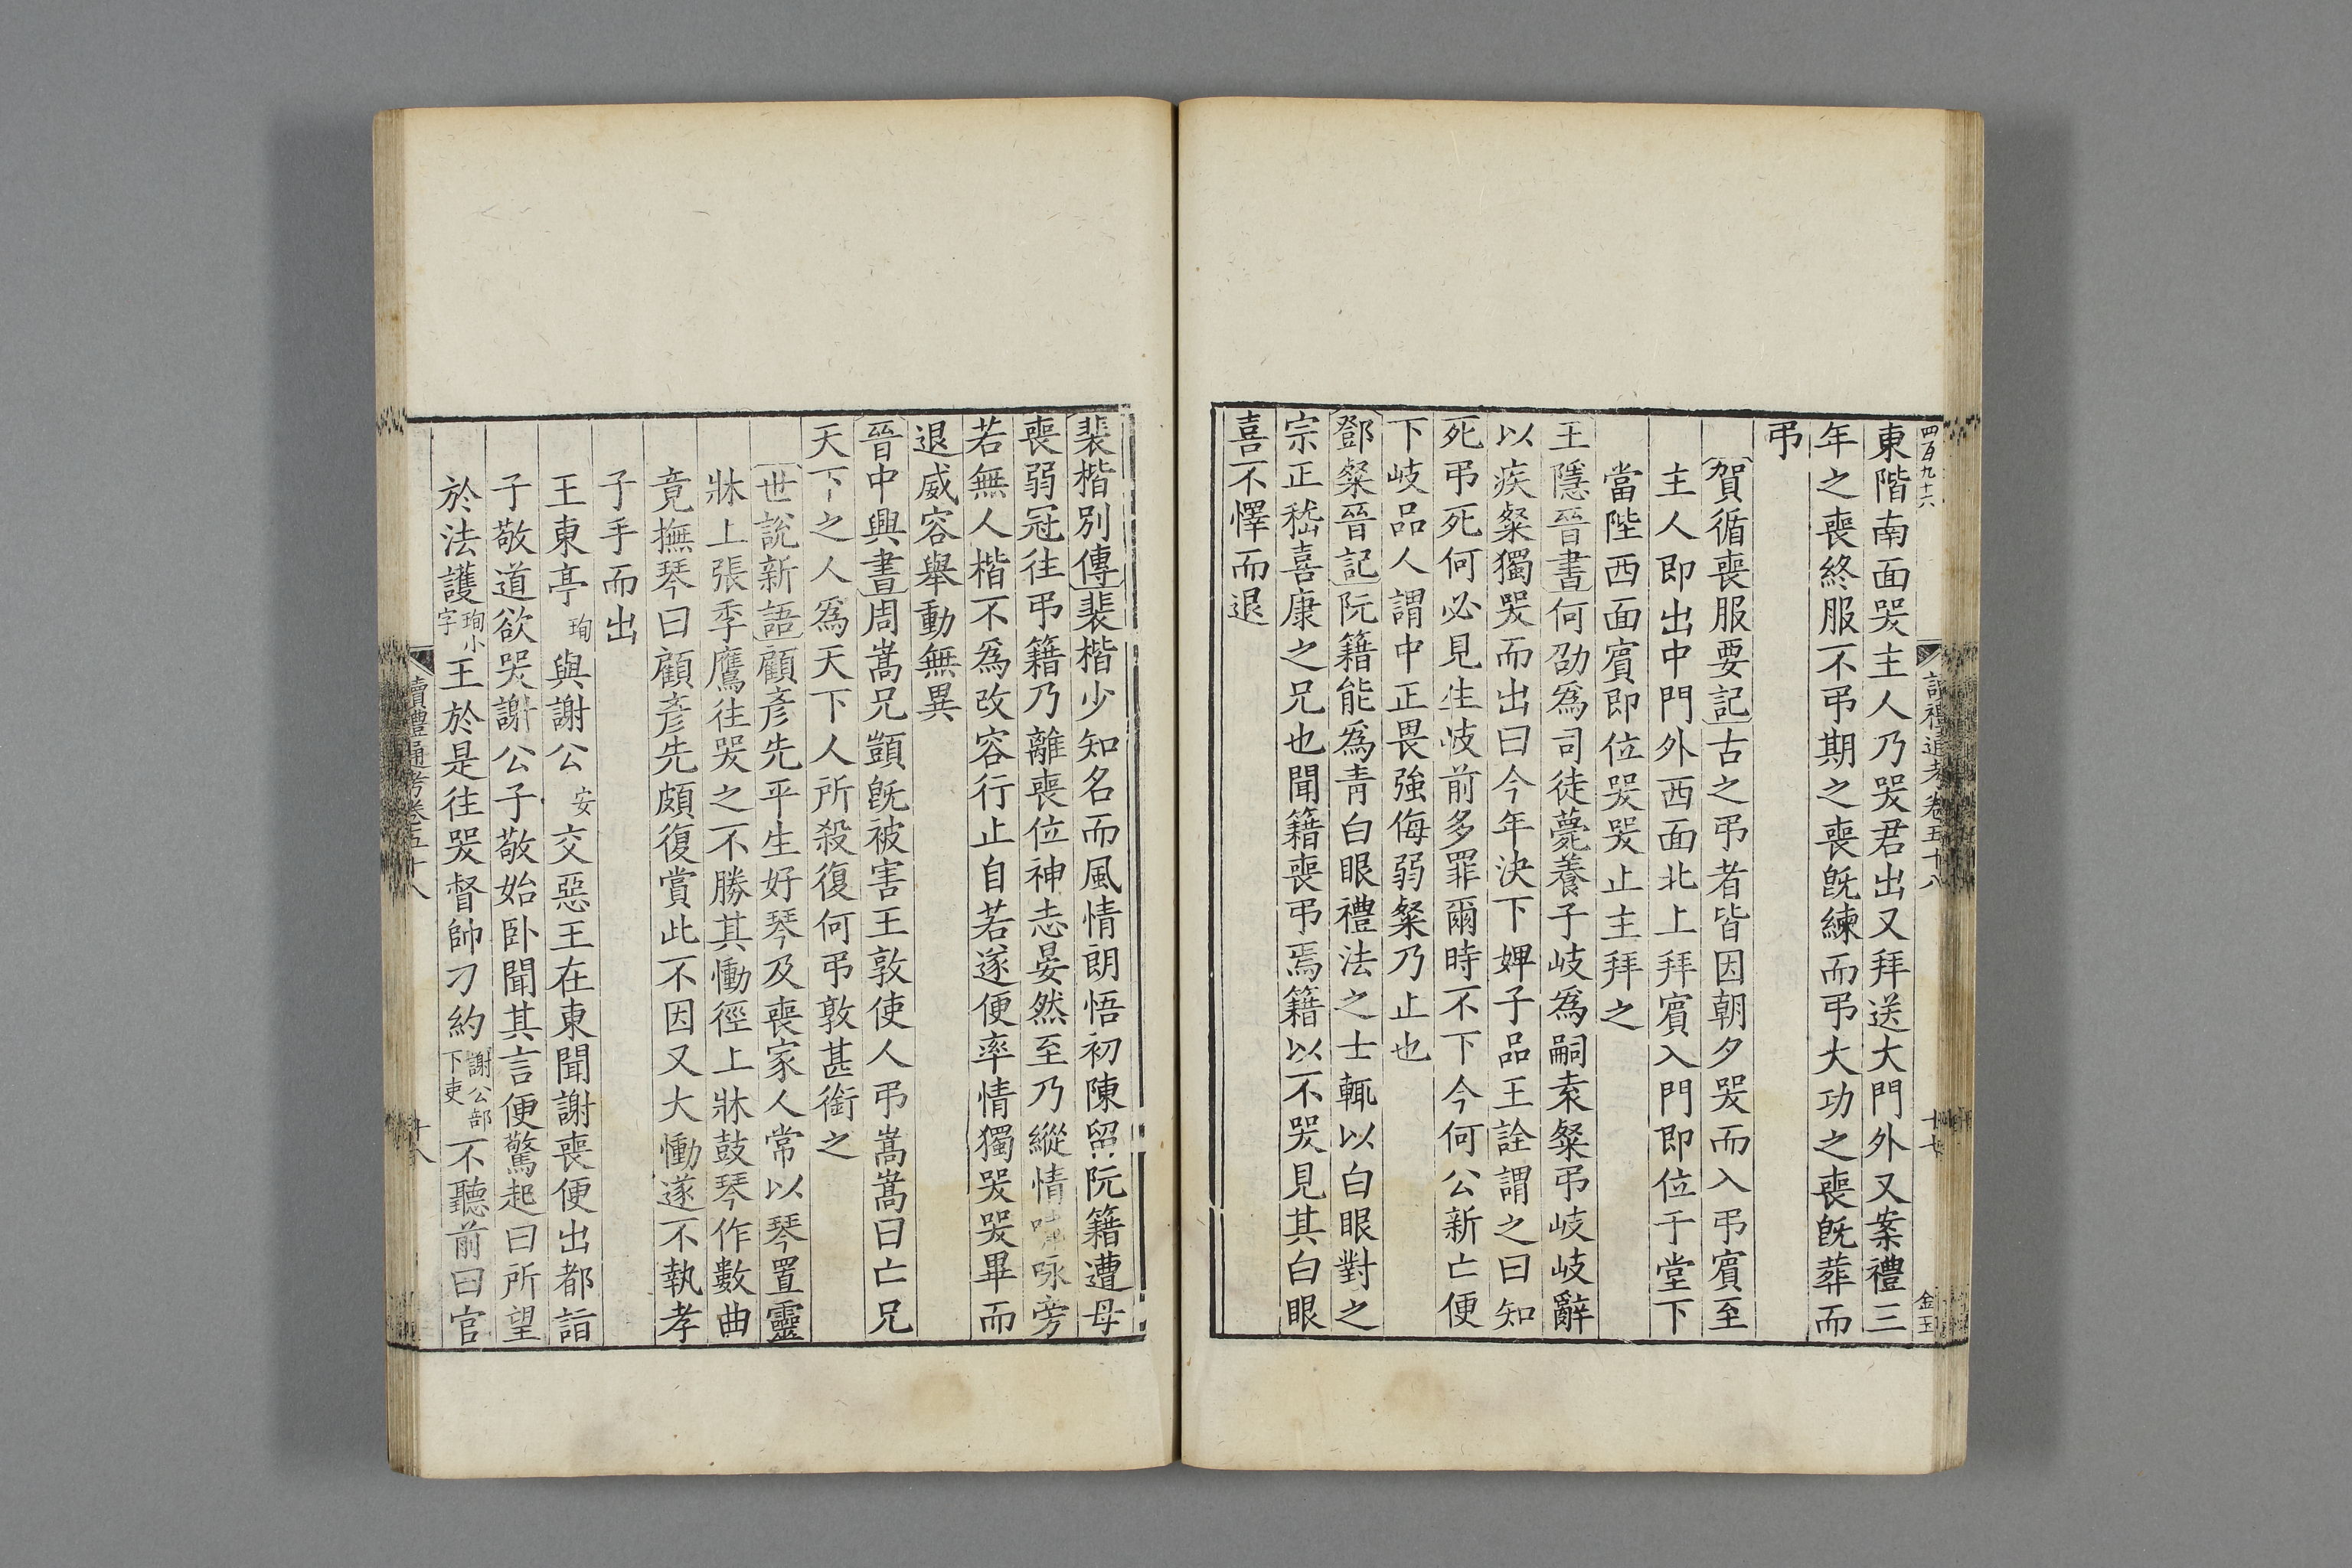 四百九十六
讀禮通考卷五十八
十七
金玉
東階南面哭主人乃哭君出又拜送大門外又案禮三
年之喪終服不弔期之喪旣練而弔大功之喪旣葬而
弔
賀循喪服要記古之弔者皆因朝夕哭而入弔賓至
主人即出中門外西面北上拜賓入門即位于堂下
當陛西面賓即位哭哭止主拜之
王隱晉書何劭爲司徒薨養子岐爲嗣袁粲弔岐岐辭
以疾粲獨哭而出曰今年決下婢子品王詮謂之曰知
死弔死何必見生岐前多罪爾時不下今何公新亡便
下岐品人謂中正畏強侮弱粲乃止也
鄧粲晉記阮籍能爲靑白眼禮法之士輒以白眼對之
宗正嵇喜康之兄也聞籍喪弔焉籍以不哭見其白眼
喜不懌而退
裴楷別傳裴楷少知名而風情朗悟初陳留阮籍遭母
喪弱冠往弔籍乃離喪位神志晏然至乃縱情嘯咏旁
若無人楷不爲改容行止自若遂便率情獨哭哭畢而
退威容舉動無異
晉中興書周嵩兄顗旣被害王敦使人弔嵩嵩曰亡兄
天下之人爲天下人所殺復何弔敦甚銜之
世說新語顧彥先平生好琴及喪家人常以琴置靈
牀上張季鷹往哭之不勝其慟徑上牀鼓琴作數曲
竟撫琴曰顧彥先頗復賞此不因又大慟遂不執孝
子手而出
王東亭珣與謝公安交惡王在東聞謝喪便出都詣
子敬道欲哭謝公子敬始卧聞其言便驚起曰所望
於法護珣小字王於是往哭督帥刁約謝公部下吏不聽前曰官
讀禮通考卷五十八
十八